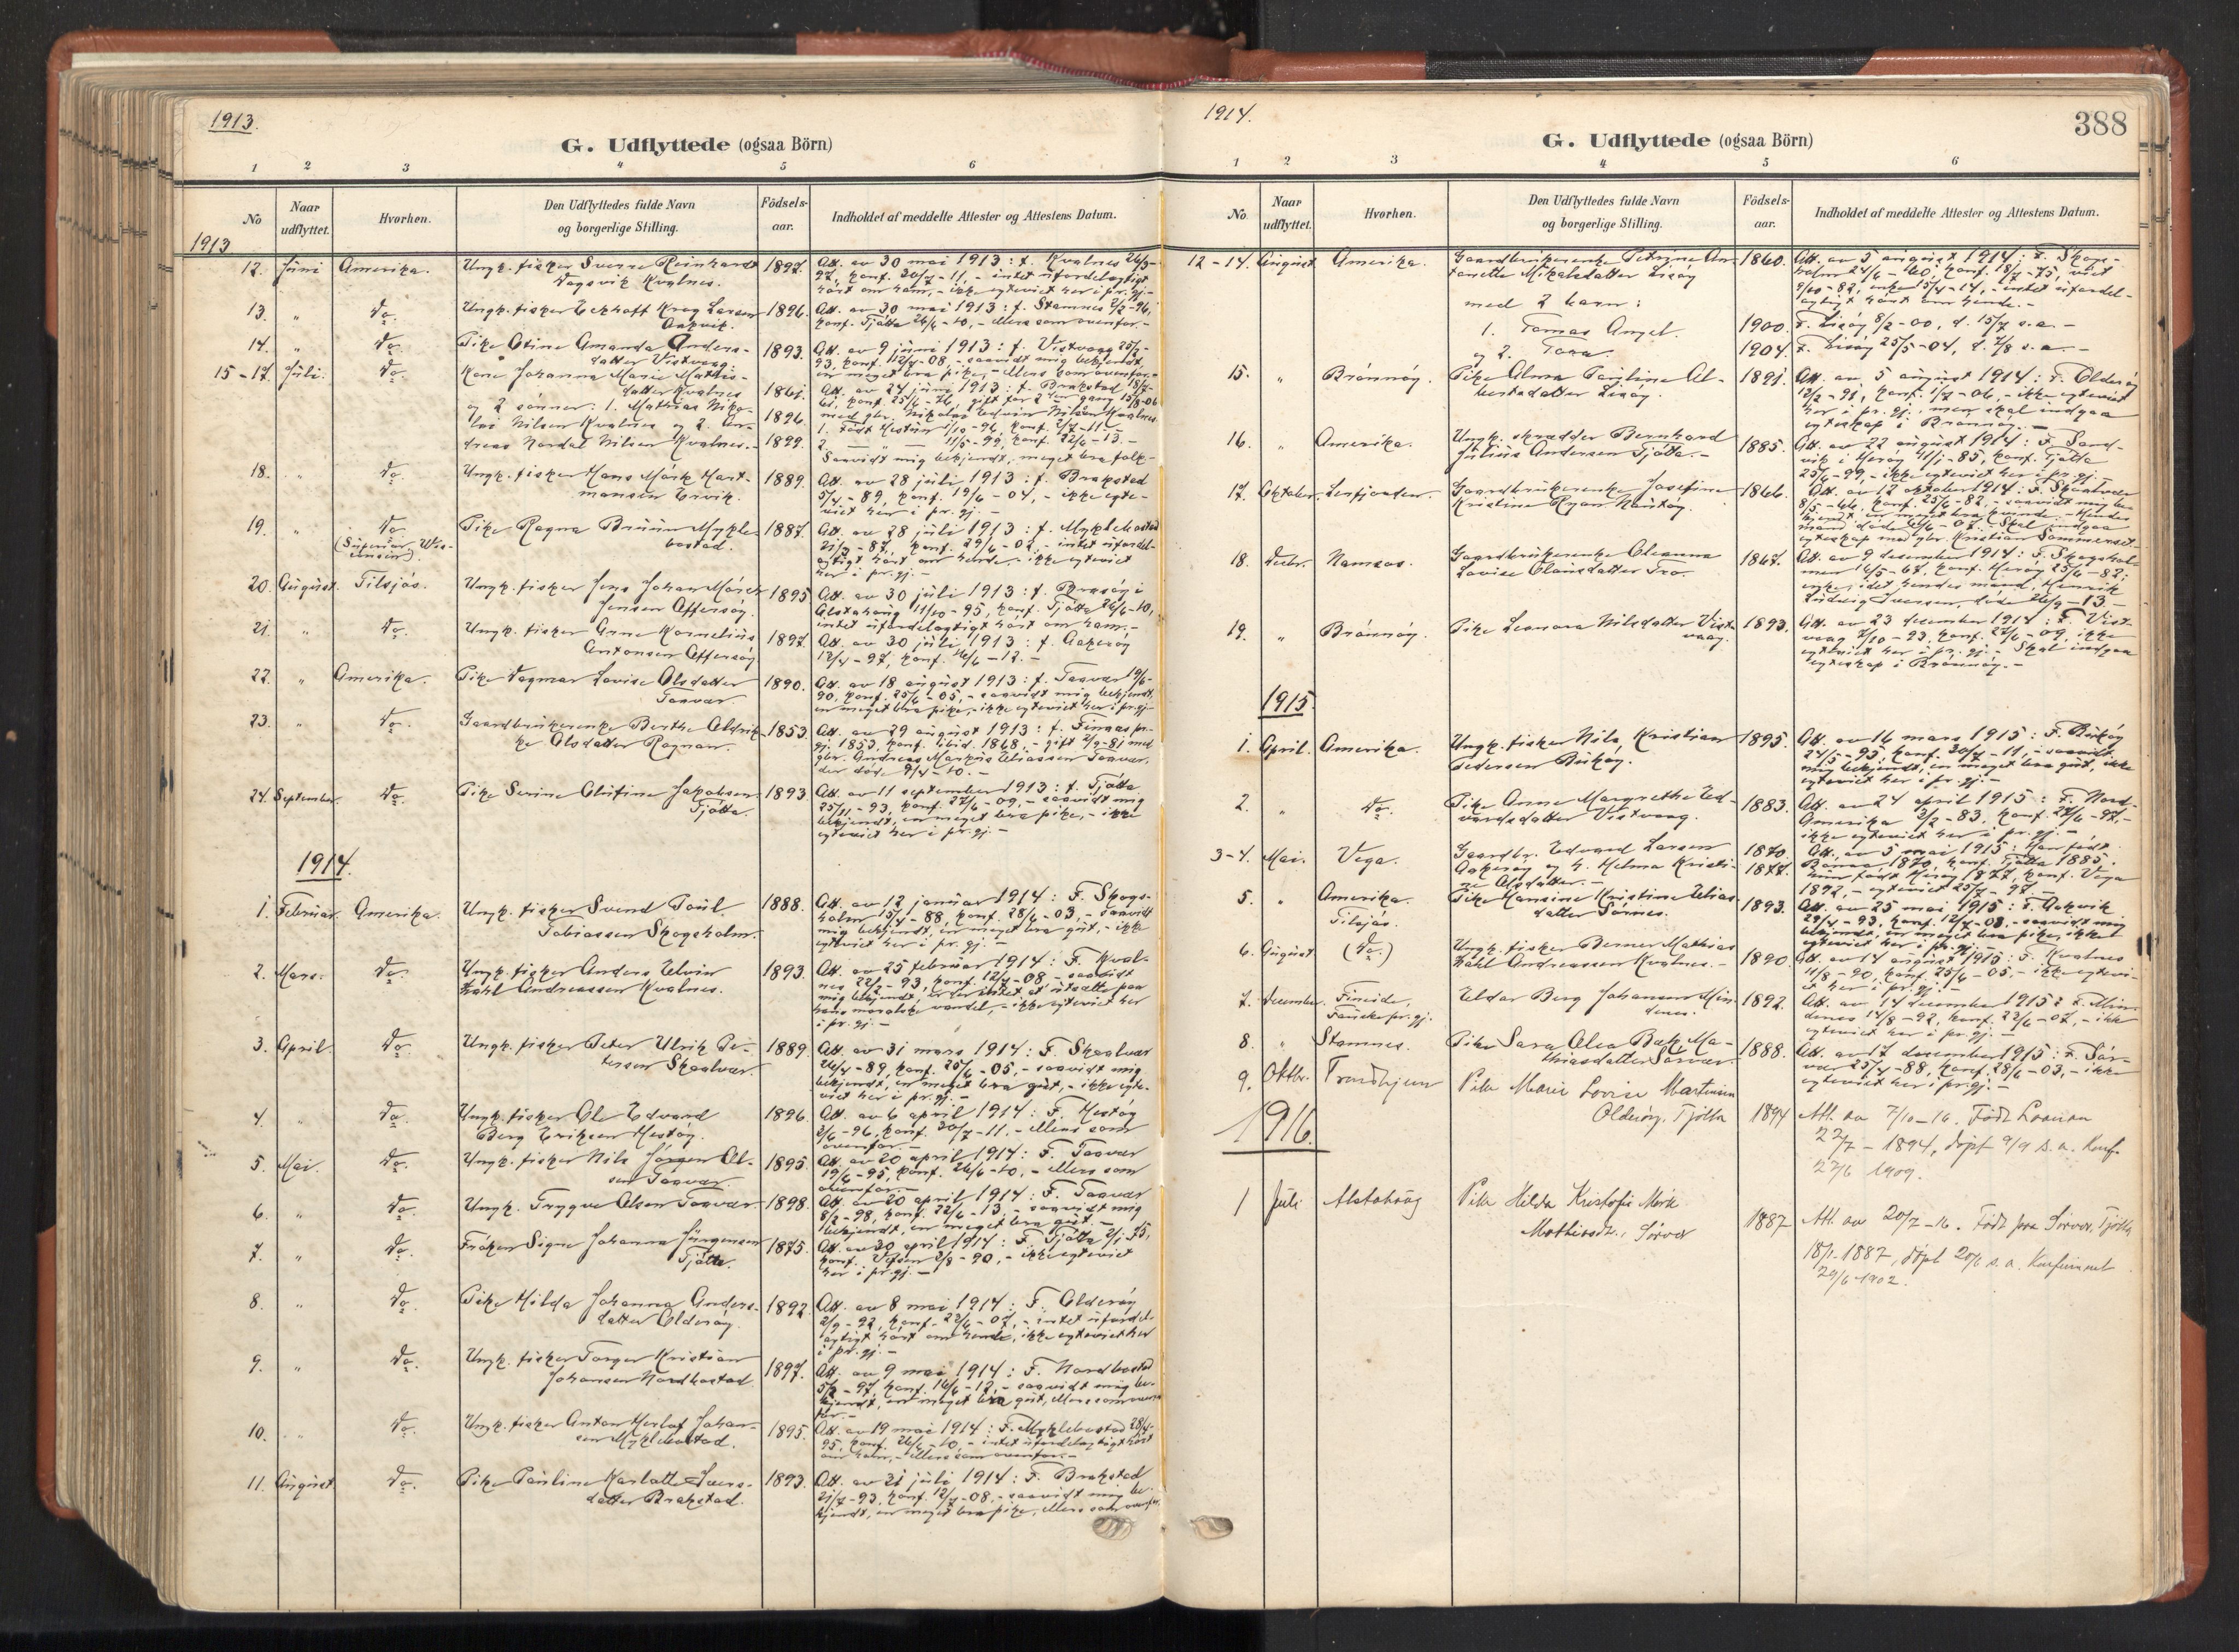 1913.
G. Udflyttede (ogsaa Börn)
1 2 3 4 5 6
No
Naar udflyttet.
Hvorhen.
Den Udflyttedes fulde Navn og borgerlige Stilling.
Födsels-aar.
Indholdet af meddelte Attester og Attestens Datum.
1913
12. Juni Amerika. Ungk. fisker Sverre Reinhardt 1897. Att. av 30 mai 1913: f. Kvalnes
Dagsvik Kvalnes. konf. - intet ufordelagtigt
hørt om ham, - ikke egteviet her i pr.gj.-
13. " Do. Ungk. fisker Eckhoff Krog Larsen 1896. Att. av 30 mai 1913: f. Stamnes
Aakvik. konf. Tjøtta 26/6-10, - ellers som ovenfor.-
14. " Do. Pike Otine Amanda Anders- 1893. Att. av 9 juni 1913: f. Vistvaag
datter Vistvaag 93, konf. 12/7-08, - saavidt mig bekjendt,
en meget bra pike, - ellers som ovenfor.-
15-17. Juli. Do. Kone Johanna Marie Mathis- Att. av 24 juni 1913: f. Brakstad
datter Kvalnes 1861. konf. 25/6-76, gift for 2den gang
og 2 sønner: 1. Mathias Niko- 1896. med gbr. Nikolai Edvin Nilsen Kvalnes
lai Nilsen Kvalnes og 2. An- 1. Født Hestun
dreas Nordal Nilsen Kvalnes.- 1899. 2. 11/5-99, konf. 22/6-13.-
Saavidt mig bekjendt, meget bra folk-
18. " Do. Ungk. fisker Hans Mørk Hart- 1889. Att. av 28 juli 1913: f. Brakstad
mansen Ervik. konf. 19/6-04, - ikke egte-
viet her i pr.gj.-
19. " Do. Pike Ragna Bruun Mykle- 1887. Att. av 28 juli 1913: f. Myklebostad
(Superior, Wis- bostad. konf. 29/6-02, - intet ufordel-
consin). agtigt hørt om hende, - ikke egteviet
her i pr.gj.-
20. August. Tilsjøs. Ungk. fisker Jens Johan Mørch 1895 Att. av 30 juli 1913: f. Brasøy i
Jensen Offersøy. Alstahaug 11/10-95, konf. Tjøtta 26/6-10,
intet ufordelagtigt hørt om ham.-
21. " Do. Ungk. fisker Arne Kornelius 1897. Att. av 30 juli 1913: f.
Antonsen Offersøy. 12/4-97, konf. 16/6-12.-
22. " Amerika. Pike Dagmar Lovise Olsdatter 1890. Att. av 18 august 1913: f. Taavær
Taavær 90, konf. 25/6-05, - saavidt mig bekjendt,
en meget bra pike, - ikke egteviet her i pr.gj-
23. " Do. Gaardbrukerenke Berthe Aldrik- 1853. Att. av 29 august 1913: f. Finnaas pr.
ke Olsdatter Rognan. gj. 1853, konf. ibid. 1868, - gift med
gbr. Andreas Markus Eliassen Taavær,
der døde 9/4-10.-
24. September. Do. Pike Serine Olufine Jakobsen 1893 Att. av 11 september 1913: f. Tjøtta
Tjøtta. 25/11-93, konf. 27/6-09, - saavidt mig
bekjendt, en meget bra pike, - ikke
egteviet her i pr.gj.-
1914.
1. Februar. Amerika. Ungk. fisker Svend Paul 1888. Att. av 12 januar 1914: F. Skogs-
Tobiassen Skogsholm. holm 15/4-88, konf. 28/6-03, - saavidt
mig bekjendt, en meget bra gut, - ikke
egteviet her i pr.gj.-
2. Mars. Do. Ungk. fisker Anders Edvin 1893. Att. av 25 februar 1914: F. Kval-
Dahl Andreassen Kvalnes. nes konf. 12/7-08, - saavidt
mig bekjendt, er der intet at utsætte paa
hans moralske vandel, - ikke egteviet her
i pr.gj.-
3. April. Do. Ungk. fisker Peter Ulrik Pe- 1889. Att. av 31 mars 1914: F. Skaalvær
tersen Skaalvær. 26/4-89, konf. 25/6-05, - saavidt mig
bekjendt, en meget bra gut, - ikke egte-
viet her i pr.gj.-
4. " Do. Ungk. fisker Ole Edvard 1896 Att. av 6 april 1914: F. Hestøy
Berg Eriksen Hestøy. konf. 30/7-11. - ellers som
ovenfor.-
5. Mai. Do. Ungk. fisker Nils Jørgen Ol- 1895. Att. av 20 april 1914: F. Taavær
sen Taavær. 19/6-95, konf. 26/6-10, - ellers som
ovenfor.-
6. " Do. Ungk. Trygve Olsen Taavær. 1898. Att. av 20 april 1914: F. Taavær
konf. 22/6-13, - saavidt mig
bekjendt, en meget bra gut.-
7. " Do. Frøken Signe Johanna Jürgensen 1875. Att. av 30 april 1914: F. Tjøtta
Tjøtta. konf. Vefsen - ikke egteviet
her i pr.gj.-
8. " Do. Pike Hilda Johanna Anders- 1892 Att. av 8 mai 1914: F. Olderøy
datter Olderøy. konf. - intet ufordel-
agtigt hørt om hende, ikke egteviet her
i pr.gj.-
9. " Do. Ungk. fisker Torger Kristian 1897. Att. av 9 mai 1914: F. Nordbostad
Johansen Nordbostad konf. 16/6-12, - saavidt mig be-
kjendt, en meget bra gut, ellers som oven-
for.-
10. " Do. Ungk. fisker Anton Herlof Johan- 1895. Att. av 19 mai 1914: F. Myklebostad 28/4-
sen Myklebostad. 95, konf. 26/6-10, - intet ufordelagtigt hørt
om ham, - ellers som ovenfor.-
11. August Do. Pike Pauline Karlotte Ivers- 1893. Att. av 21 juli 1914: F. Brakstad
datter Brakstad. 21/7-93, konf. 12/7-08, - saavidt mig be-
kjendt, en meget bra pike, ellers som ovenfor.
1914.
388
G. Udflyttede (ogsaa Börn)
1 2 3 4 5 6
No.
Naar udflyttet.
Hvorhen.
Den Udflyttedes fulde Navn og borgerlige Stilling.
Födsels-aar.
Indholdet af meddelte Attester og Attestens Datum.
12-14. August Amerika. Gaardbrukerenke Petrine An- 1860. Att. av 5 august 1914: F. Skogs-
tonette Mikalsdatter Lisøy holm 24/6-60, konf. 18/7-75, viet
9/10-82, enke 15/4-14, - intet ufordel-
med 2 barn: agtigt hørt om hende.-
1. Tomas Angel. 1900. F. Lisøy 8/2-00, d. 15/7 s.a.-
og 2. Tora. 1904. F. Lisøy 25/5-04, d. 7/8 s.a.-
15. " Brønnøy. Pike Alma Pauline Al- 1891. Att. av 5 august 1914: F. Olderøy
bertsdatter Lisøy. 12/2-91, konf. 1/7-06, - ikke egteviet
her i pr.gj., men skal indgaa
egteskap i Brønnøy.-
16. " Amerika. Ungk. skrædder Bernhard 1885. Att. av 22 august 1914: F. Sand-
Julius Andersen Tjøtta.- vik i Herøy 11/1-85, konf. Tjøtta
25/6-99, - ikke egteviet her i pr.gj.-
17. Oktober. Leirfjorden. Gaardbrukerenke Josefine 1866. Att. av 12 oktober 1914: F. Skaalvær
Kristine Ryan 8/5-66, konf. 25/6-82, - saavidt mig be-
kjendt, en meget bra kvinde.- Hendes
mand døde Skal indgaa
egteskap med gbr. Kristian Sommerset.
18. Decbr. Namsos. Gaardbrukerenke Oleanna 1867. Att. av 9 december 1914: F. Skogshol-
Lovise Olausdatter Tro. men 16/5-67, konf. Herøy 25/6-82;
enke, idet hendes mand, Henrik
Ludvig Iversen, døde
19. " Brønnøy. Pike Leonora Nilsdatter Vist- 1893. Att. av 23 december 1914: F. Vist-
vaag. vaag konf. 27/6-09, ikke
egteviet her i pr.gj.- Skal indgaa
egteskap i Brønnøy.-
1915
1. April. Amerika. Ungk. fisker Nils Kristian 1895. Att. av 16 mars 1915: F. Buköy
Pedersen Buköy. 24/5-95, konf. 30/7-11, - saavidt
mig bekjendt, en meget bra gut, ikke
egteviet her i pr.gj.-
2. " Do. Pike Anne Margrethe Ed- 1883. Att. av 24 april 1915: F. Nord-
vardsdatter Vistvaag. Amerika konf. 27/6-97,-
ikke egteviet her i pr.gj.-
3-4. Mai. Vega. Gaardbr. Edvard Larsen 1870. Att. av 5 mai 1915: Han født
og h. Helma Kristi- 1877. 1870, konf. Tjøtta 1885.
ne Olsdatter.- Hun født Herøy 1877, konf. Vega
1892, - egteviet 25/7-97.-
5. " Amerika. Pike Hansine Kristine Elias- 1893. Att. av 25 mai 1915: F. Aakvik
Tilsjøs. datter Sørnes. 29/4-93, konf. 12/7-08, - saavidt mig
bekjendt, en meget bra pike, ikke
egteviet her i pr.gj.-
6. August (Do.) Ungk. fisker Berner Mathias 1890. Att. av 14 august 1915: F. Kvalnes
Dahl Andreassen Kvalnes.- 11/8-90, konf. 25/6-05, - ikke egtevi-
et her i pr.gj.-
7. December. Fineide, Eldar Berg Johansen Min- 1892. Att. av 14 december 1915: F. Min-
Fauske pr.gj. denes. 14/8-92, konf. 23/6-07, - ikke
egteviet her i pr.gj.-
8. " Stamnes. Pike Sara Olea Bak Ma- 1888. Att. av 17 december 1915: F. Sør-
thiasdatter Sørvær. vær 25/4-88, konf. 28/6-03, - ikke
egteviet her i pr.gj.-
9. Oktbr. Trondhjem Pike Marie Lovise Martinsen
Olderöy, Tjøtta 1894 Att. av 7/10-16. Født
22/7-1894, døpt 9/9 s.a. Konf.
27/6 1909.
1916.
1 Juli Alstahaug Pike Hilda Kristofa Mörk
Mathiasdtr., Sørvær 1887 Att. av 20/7-16. Født paa Sørvær, Tjøtta
18/1-1887, døpt 20/6 s.a. Konfirmert
29/6-1902.